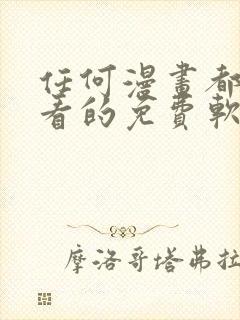 任何漫畫都
看的免費軟
摩洛哥塔弗拉